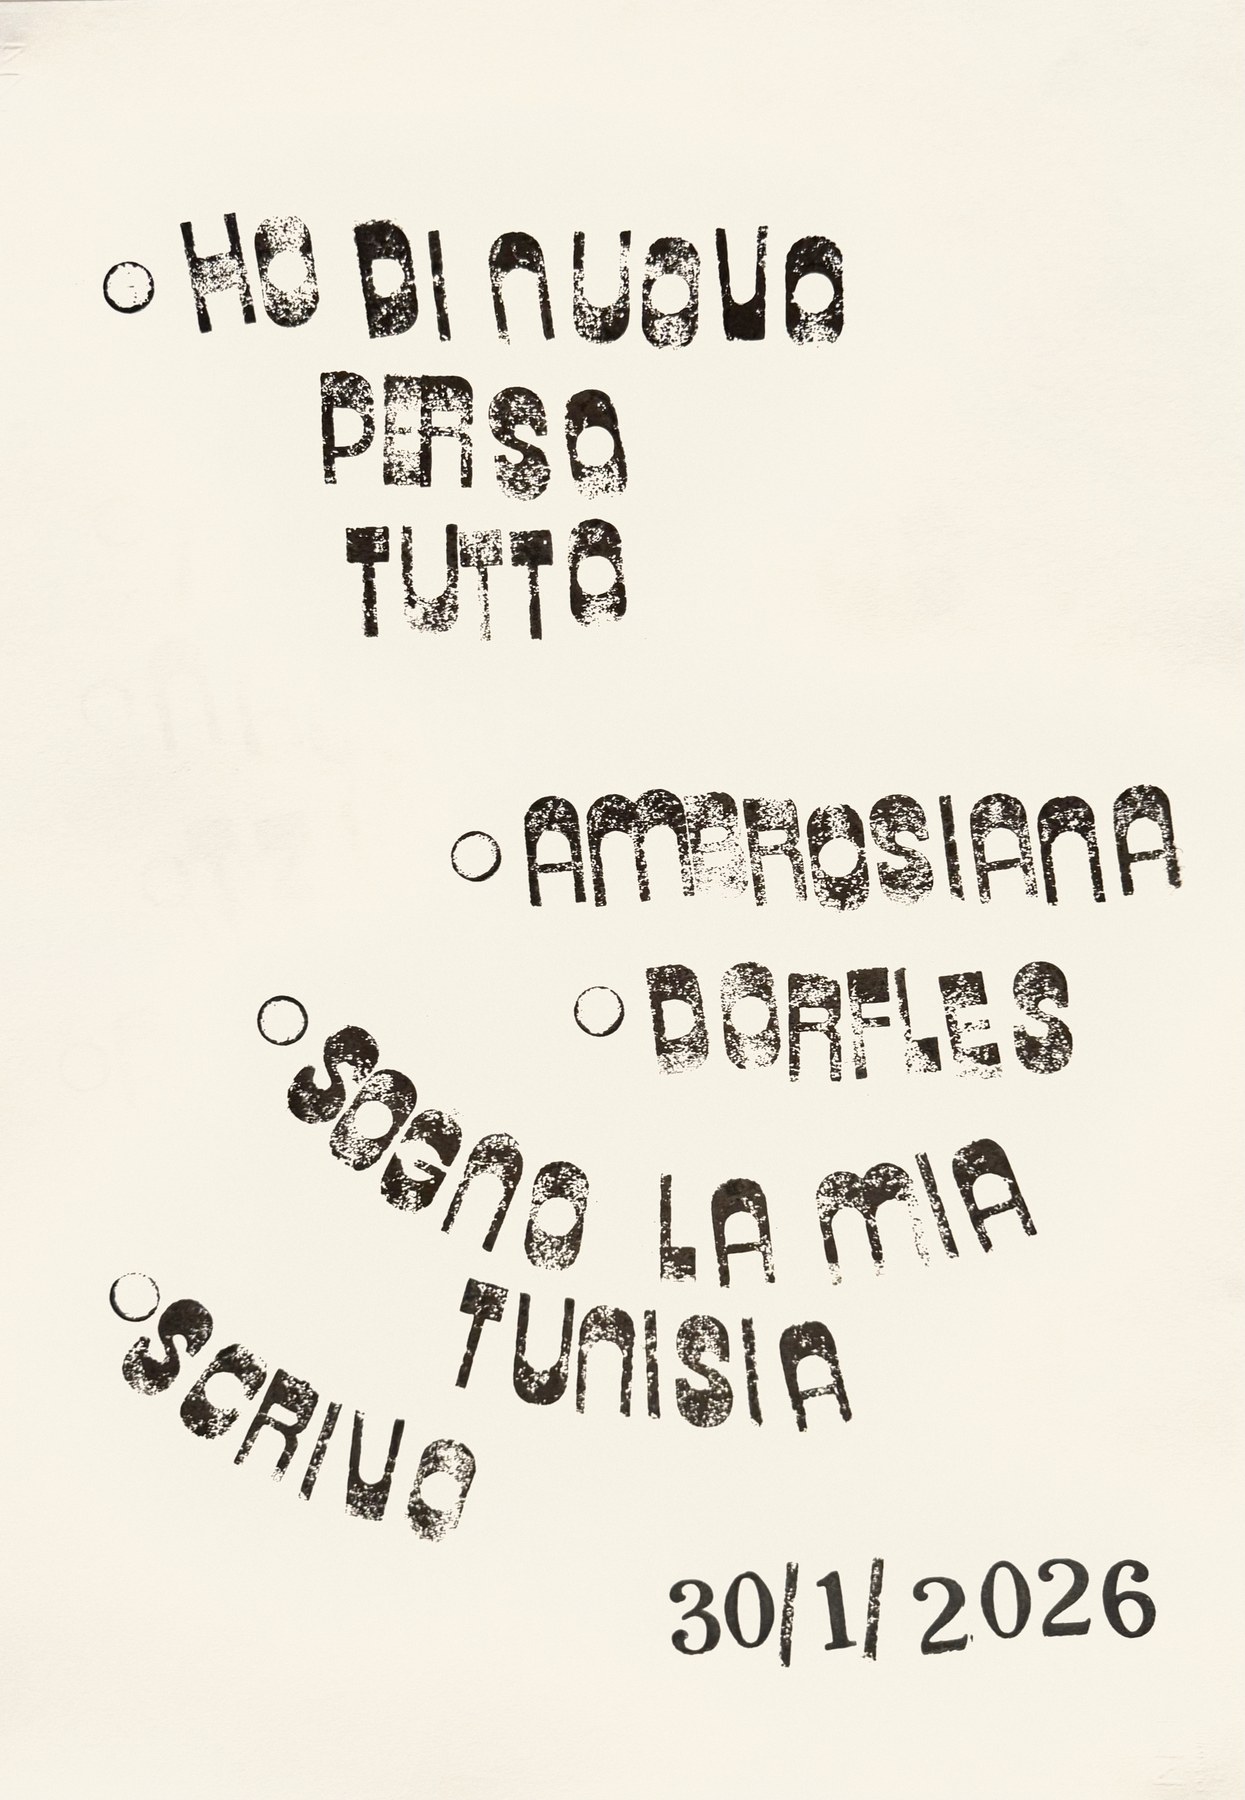 ○ HO DI NUOVO
PERSO
TUTTO
○ AMBROSIANA
○ DORFLES
○ SOGNO LA MIA
TUNISIA
○ SCRIVO
30/1/2026